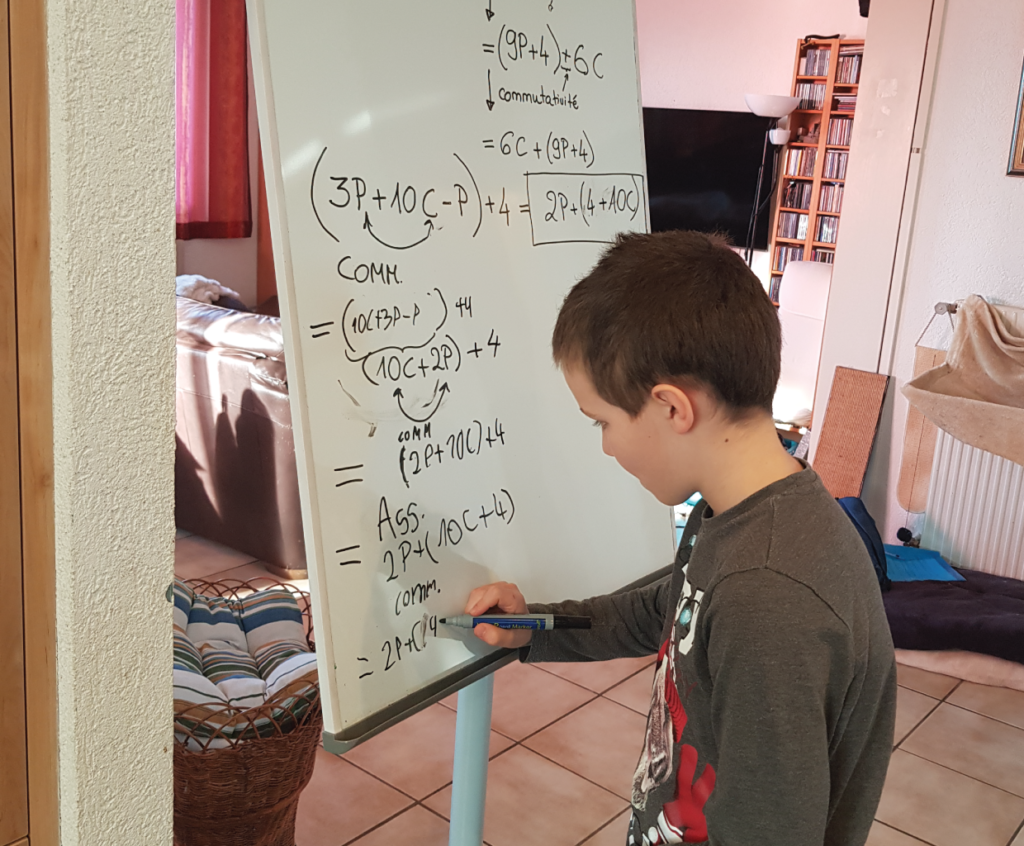 =(9P+4)+6C
commutativité
=6C+(9P+4)
(3P+10C-P)+4=2P+(4+10C)
COMM.
=(10C+3P-P)+4
(10C+2P)+4
comm
=(2P+10C)+4
Ass.
=2P+(10C+4)
comm.
=2P+(4